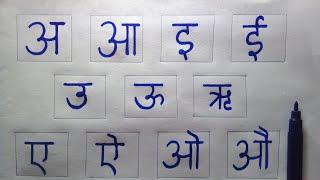 अ आ इ ई
उ ऊ ऋ
ए ऐ ओ औ